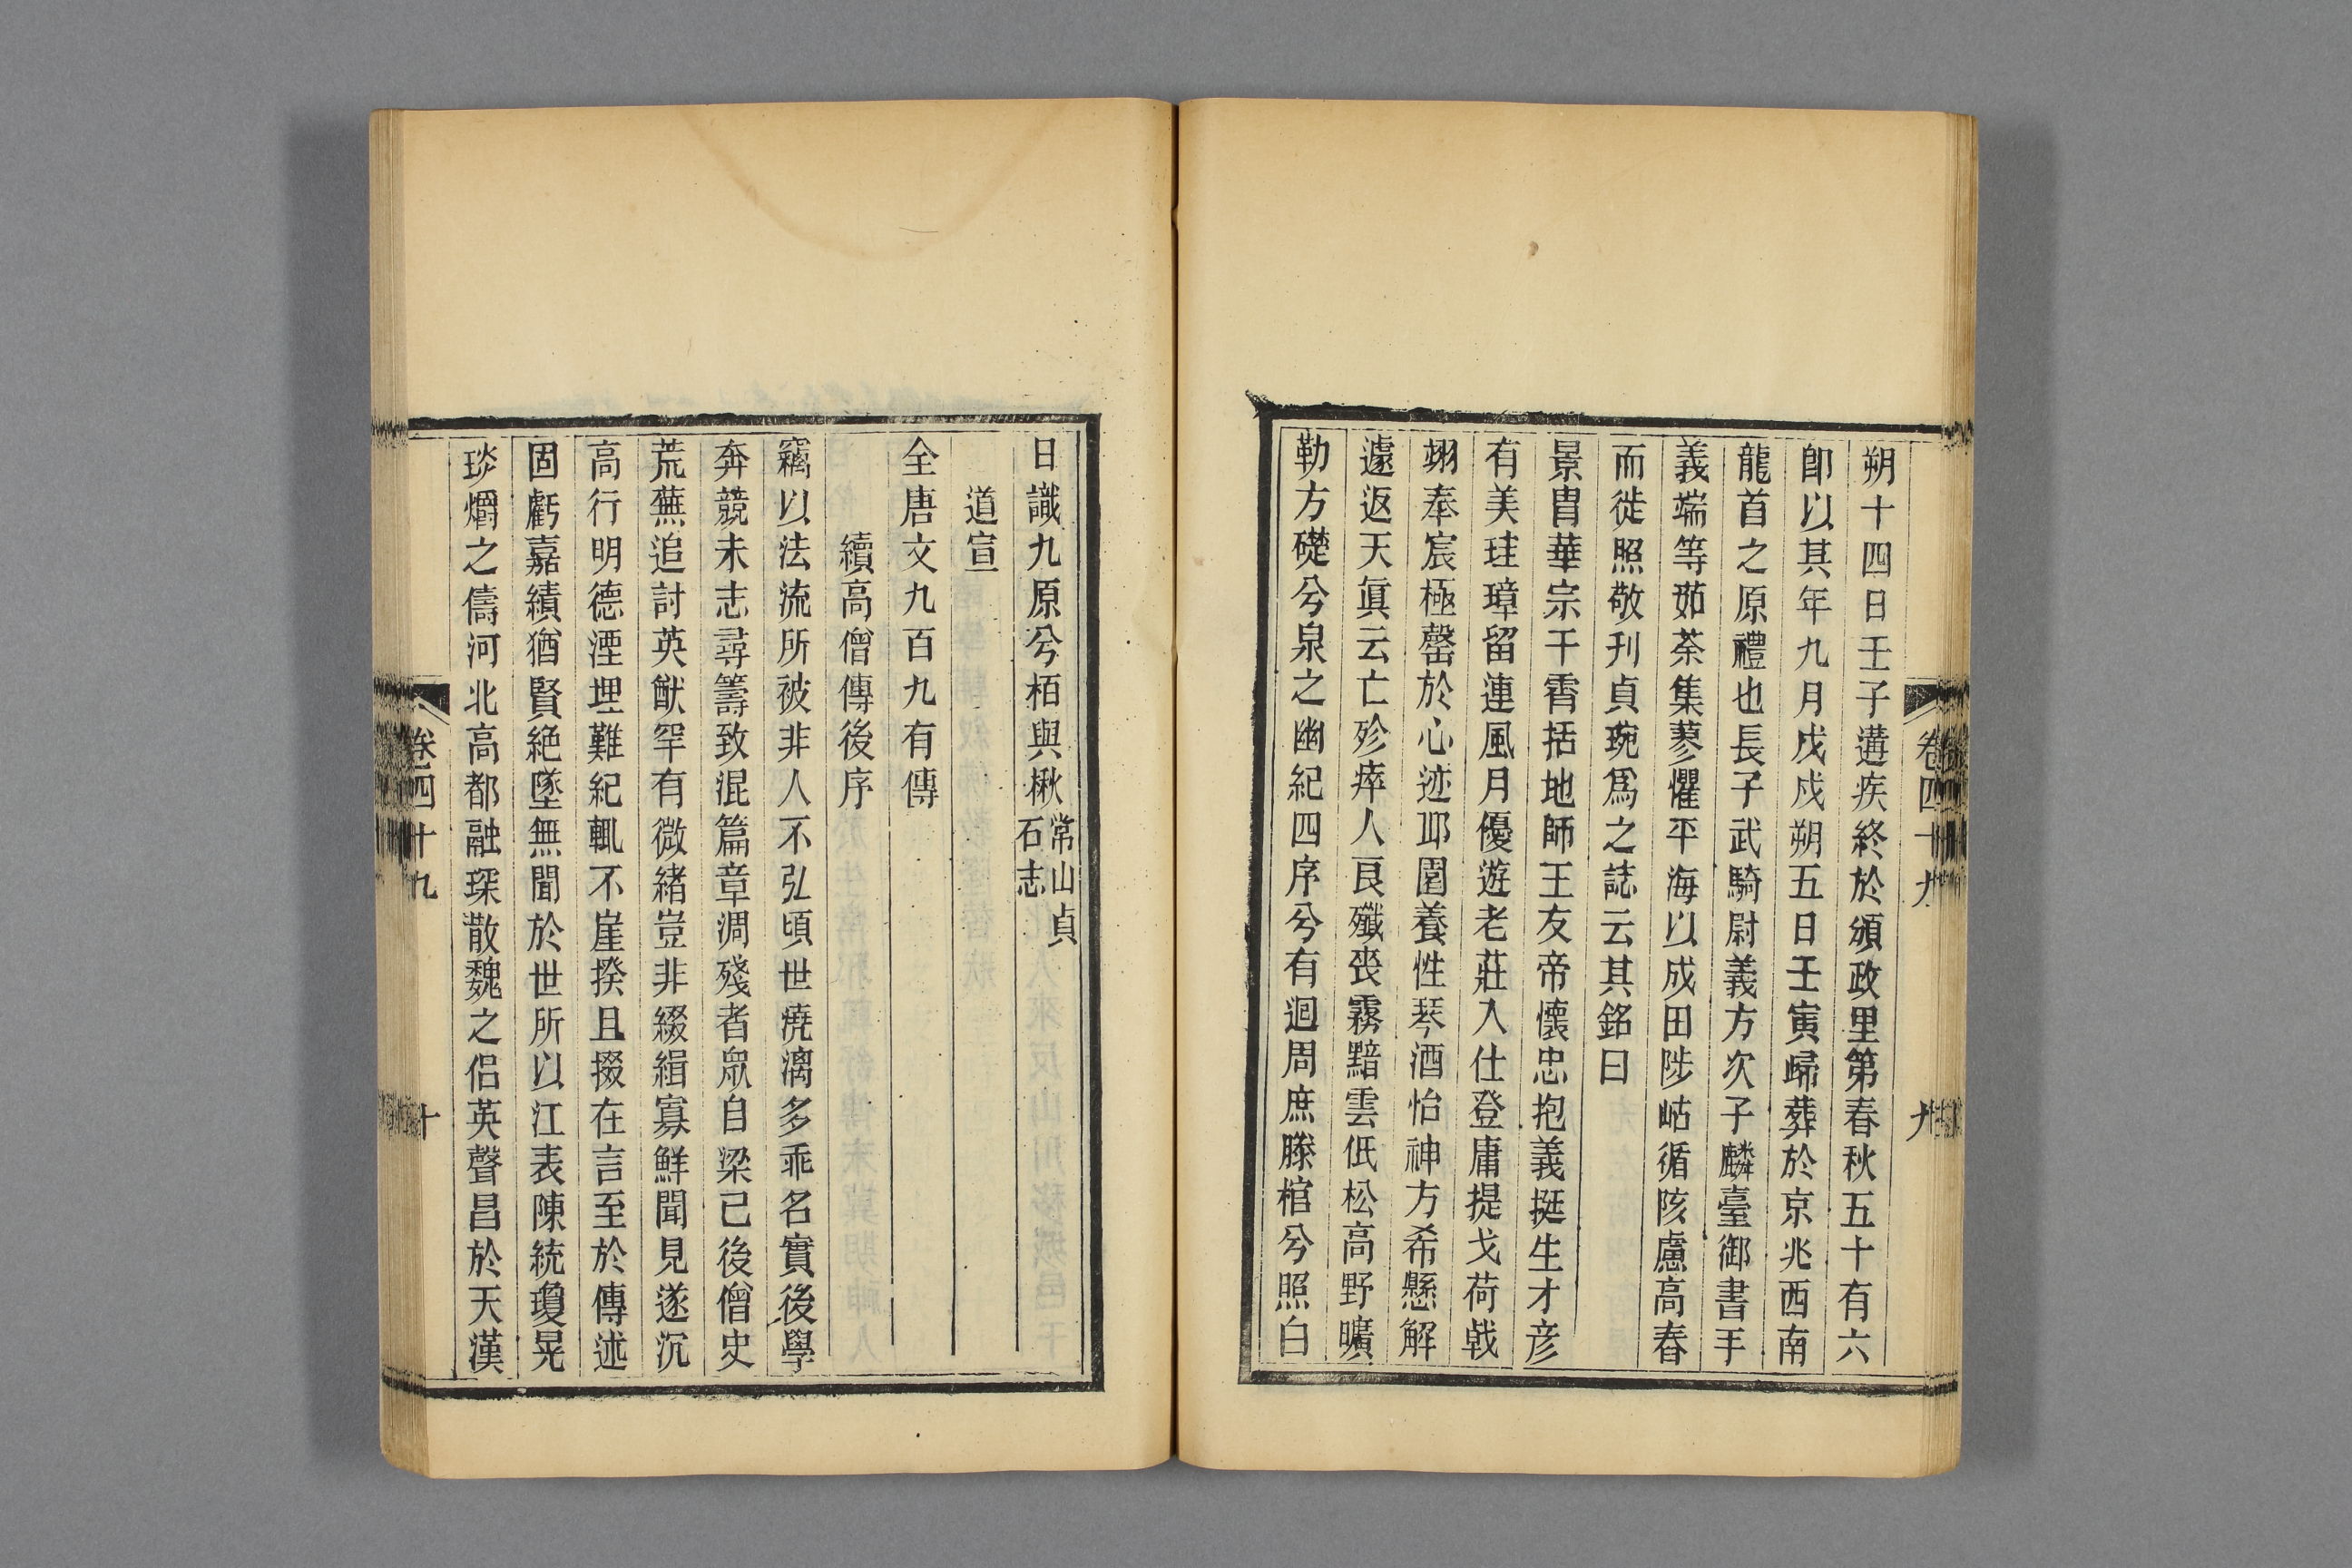 卷四十九
九
朔十四日壬子遘疾終於頒政里第春秋五十有六
卽以其年九月戊戌朔五日壬寅歸葬於京兆西南
龍首之原禮也長子武騎尉義方次子麟臺御書手
義端等茹荼集蓼懼平海以成田陟岵循陔慮高舂
而徙照敬刊貞琬爲之誌云其銘曰
景胄華宗干霄括地師王友帝懷忠抱義挺生才彦
有美珪璋留連風月優遊老莊入仕登庸提戈荷戟
翊奉宸極罄於心迹丘園養性琴酒怡神方希懸解
遽返天眞云亡殄瘁人良殲喪霧黯雲低松高野曠
勒方礎兮泉之幽紀四序兮有迴周庶滕棺兮照白
日識九原兮栢與楸常山貞
石志
道宣
全唐文九百九有傳
續高僧傳後序
竊以法流所被非人不弘頃世澆漓多乖名實後學
奔競未志尋籌致混篇章凋殘者眾自梁已後僧史
荒蕪追討英猷罕有微緒豈非綴緝寡鮮聞見遂沉
高行明德湮埋難紀輒不崖揆且掇在言至於傳述
固虧嘉績猶賢絶墜無聞於世所以江表陳統瓊晃
琰爝之儔河北高都融琛散魏之侶英聲昌於天漢
卷四十九
十